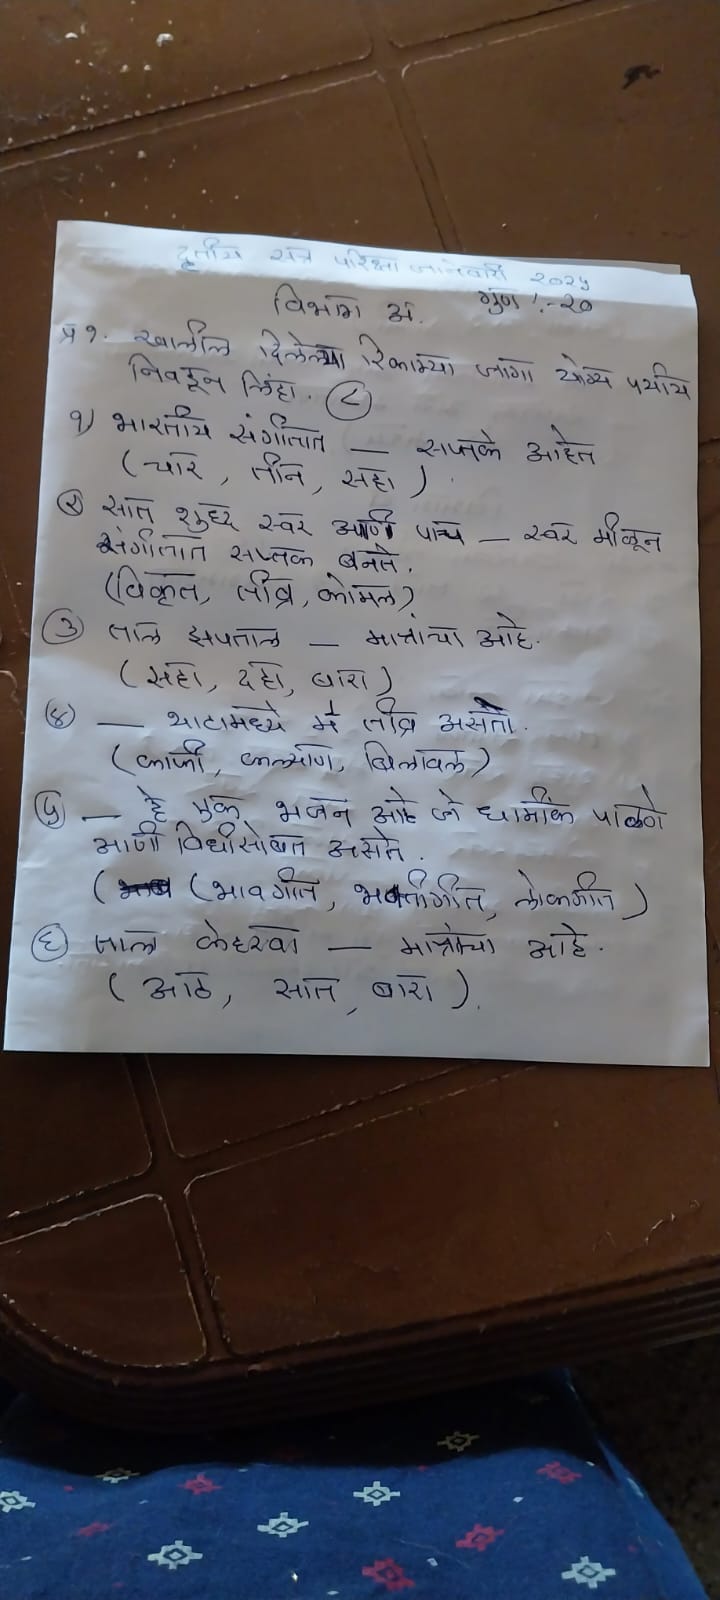 द्वितीय सत्र परिक्षा जानेवारी २०२५
विभाग अ. गुण :-२०
प्र १. खालील दिलेल्या रिकाम्या जागा योग्य पर्याय
निवडून लिहा. ८
१) भारतीय संगीतात — सप्तके आहेत
(चार, तीन, सहा).
२ सात शुध्द स्वर आणि पाच — स्वर मीळून
संगीतात सप्तक बनते.
(विकृत, तीव्र, कोमल)
३ ताल झपताल — मात्रांचा आहे.
(सहा, दहा, बारा)
४ — थाटामध्ये मे तीव्र असतो.
(काफी, कल्याण, बिलावल)
५ — हे एक भजन आहे जे धार्मीक पाळणे
आणी विधीसोबत असते.
(भावगीत, भक्तीगीत, लोकगीत)
६ ताल केहरवा — मात्रांचा आहे.
(आठ, सात, बारा).